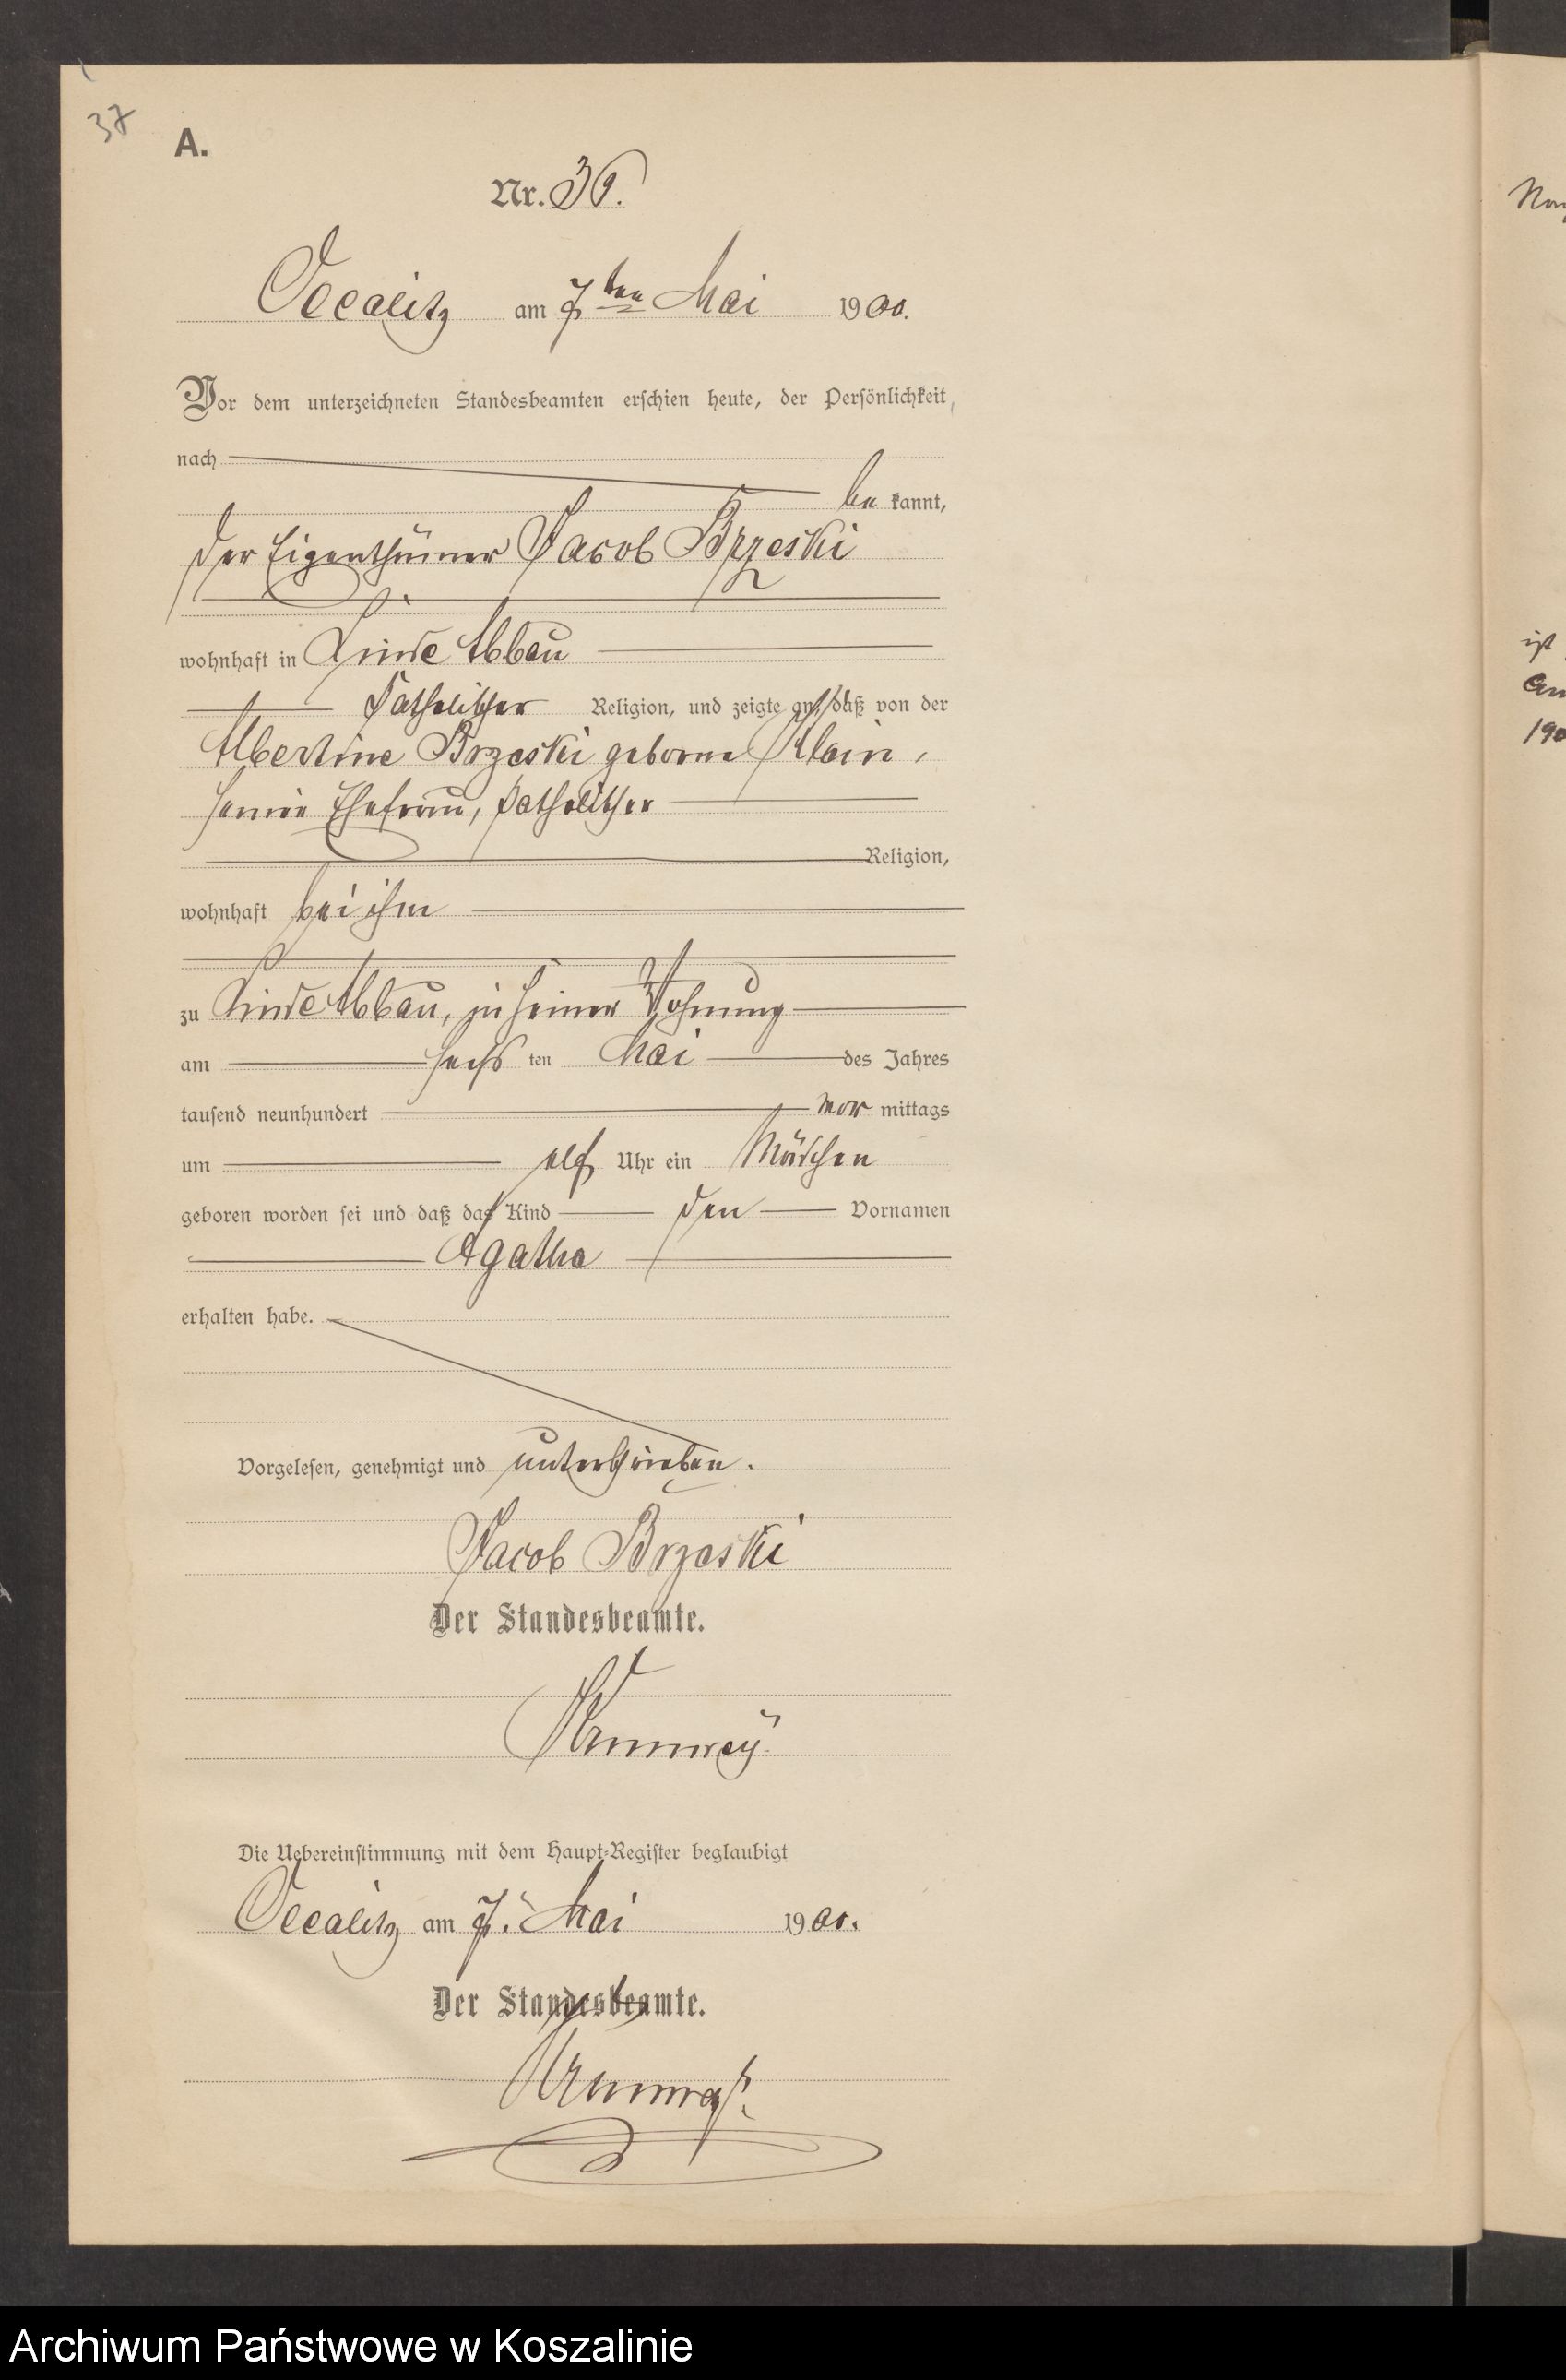 37
A.
Nr. 36.
Occalitz am 7ten Mai 1900.
Vor dem unterzeichneten Standesbeamten erschien heute, der Persönlichkeit
nach
be kannt,
der Eigenthümer Jacob Brzeski
wohnhaft in Linde Abbau
katholischer Religion, und zeigte an, daß von der
Albertine Brzeski geborne Klein,
seine Ehefrau, katholischer
Religion,
wohnhaft bei ihm
zu Linde Abbau, in seiner Wohnung
am sechs ten Mai des Jahres
tausend neunhundert vor mittags
um elf Uhr ein Mädchen
geboren worden sei und daß das Kind den Vornamen
Agatha
erhalten habe.
Vorgelesen, genehmigt und unterschrieben.
Jacob Brzeski
Der Standesbeamte.
Die Uebereinstimmung mit dem Haupt-Register beglaubigt
Occalitz am 7. Mai 1900.
Der Standesbeamte.
ist
190
Archiwum Państwowe w Koszalinie